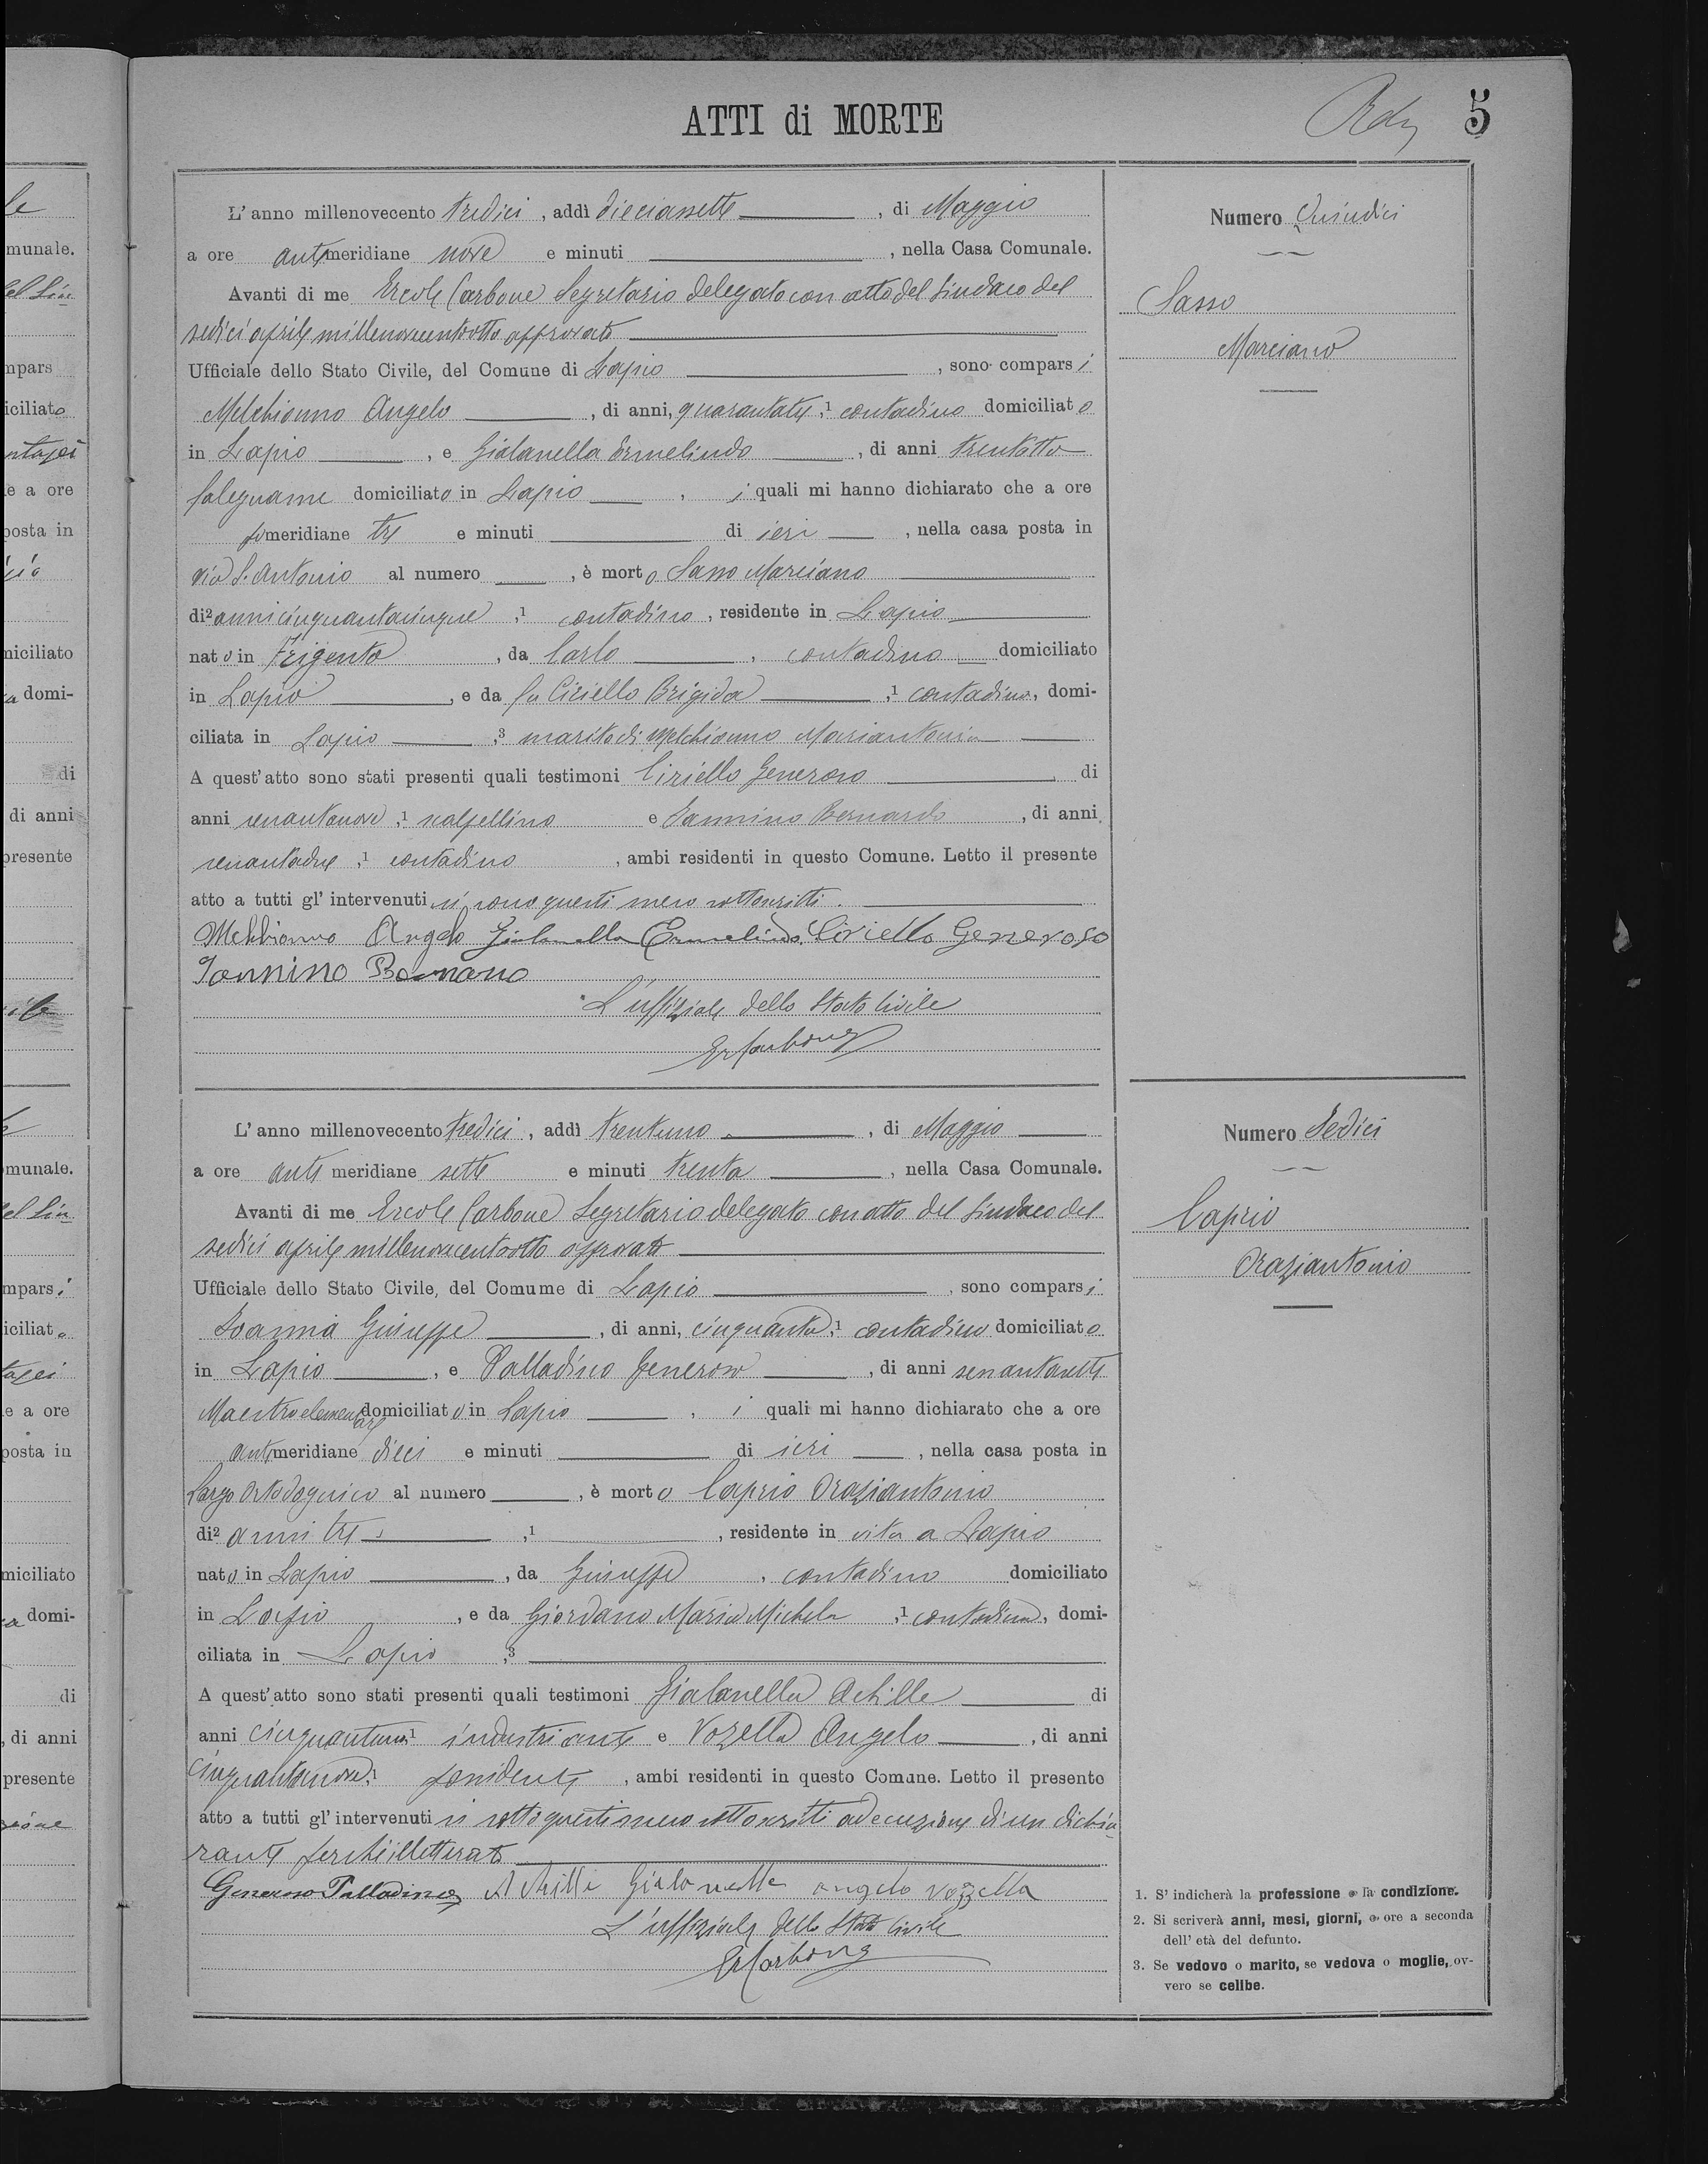 ATTI di MORTE
5
L' anno millenovecento tredici, addì dieciassette, di Maggio
a ore antimeridiane nove e minuti, nella Casa Comunale.
Avanti di me Ercole Carbone Segretario delegato con atto del Sindaco del
sedici aprile millenovecentootto approvato
Ufficiale dello Stato Civile, del Comune di Lapio, sono comparsi
Melchionno Angelo, di anni, quarantatre,1 contadino domiciliato
in Lapio, e Gialanella Ermelindo, di anni trentotto
falegname domiciliato in Lapio, i quali mi hanno dichiarato che a ore
pomeridiane tre e minuti di ieri, nella casa posta in
via S. Antonio al numero, è morto Sasso Marciano
di2 anni cinquantacinque,1 contadino, residente in Lapio
nato in Frigento, da Carlo, contadino domiciliato
in Lapio, e da fu Ciriello Brigida,1 contadina, domi-
ciliata in Lapio,3 marito di Melchionno Mariantonia
A quest' atto sono stati presenti quali testimoni Ciriello Generoso di
anni sessantanove,1 scalpellino e Iannino Bernardo, di anni
sessantadue,1 contadino, ambi residenti in questo Comune. Letto il presente
atto a tutti gl' intervenuti si sono questi meco sottoscritti.
Melchionno Angelo Gialanella Ermelindo Ciriello Generoso
Iannino
L'uffiziale dello Stato Civile
Er Carbone
Numero Quindici
Sasso
Marciano
L' anno millenovecento tredici, addì trentuno, di Maggio
a ore anti meridiane sette e minuti trenta, nella Casa Comunale.
Avanti di me Ercole Carbone Segretario delegato con atto del Sindaco del
sedici aprile millenovecentootto approvato
Ufficiale dello Stato Civile, del Comume di Lapio, sono comparsi
Loanna Giuseppe, di anni, cinquanta,1 contadino domiciliato
in Lapio, e Palladino Generoso, di anni sessantasette
Maestro elementare domiciliato in Lapio, i quali mi hanno dichiarato che a ore
antimeridiane dieci e minuti di ieri, nella casa posta in
Largo al numero, è morto Caprio Oraziantonio
di2 anni tre,1, residente in vita a Lapio
nato in Lapio, da Giuseppe, contadino domiciliato
in Lapio, e da Giordano Maria Michela,1 contadina, domi-
ciliata in Lapio,3
A quest' atto sono stati presenti quali testimoni Gialanella Achille di
anni cinquantuno1 industriante e Vozella Angelo, di anni
cinquantanove,1 possidente, ambi residenti in questo Comune. Letto il presento
atto a tutti gl' intervenuti si sotto questi meco sottoscritti ad eccezione di un dichia
rante perchè illetterato
Generoso Palladino Achille Gialanella angelo vozzella
L'uffiziale dello Stato Civile
Er Carbone
Numero Sedici
Caprio
Oraziantonio
1. S' indicherà la professione o la condizione.
2. Si scriverà anni, mesi, giorni, o ore a seconda
dell' età del defunto.
3. Se vedovo o marito, se vedova o moglie, ov-
vero se celibe.